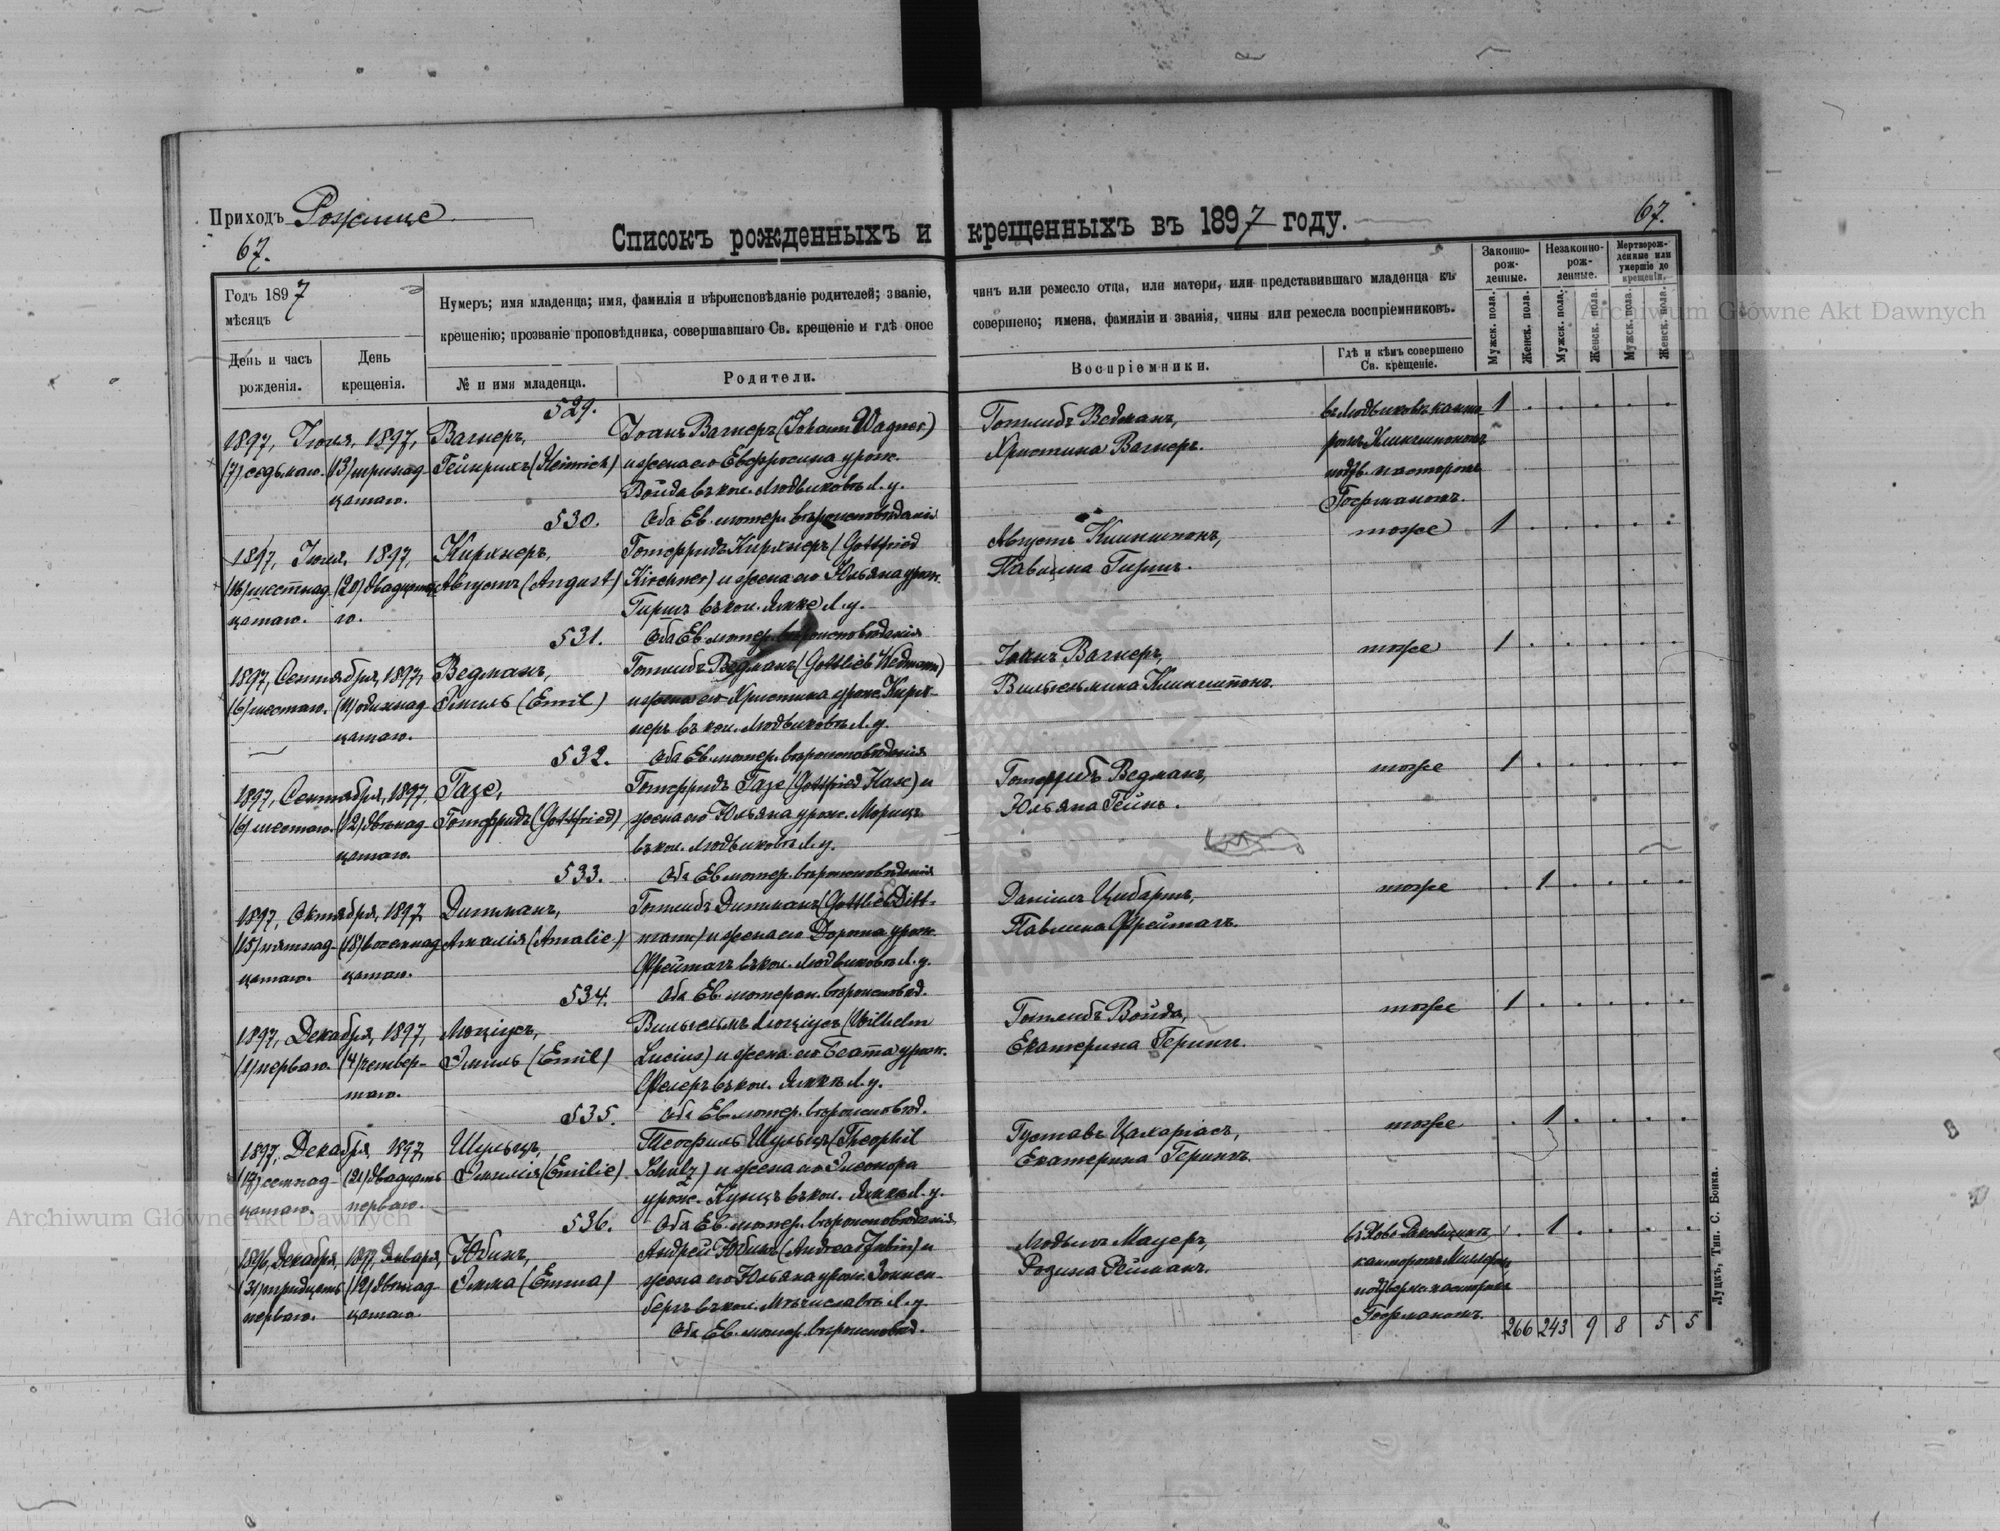 Приходъ Рожище
67.
67.
Списокъ рожденныхъ и крещенныхъ въ 1897 году.
Годъ 1897
мѣсяцъ
День и часъ рожденія.
День крещенія.
Нумеръ; имя младенца; имя, фамилія и вѣроисповѣданіе родителей; званіе, чинъ или ремесло отца, или матери, или представившаго младенца къ
крещенію; прозваніе проповѣдника, совершавшаго Св. крещеніе и гдѣ оное совершено; имена, фамиліи и званія, чины или ремесла воспріемниковъ.
№ и имя младенца.
Родители.
Воспріемники.
Гдѣ и кѣмъ совершено Св. крещеніе.
Законно-рож-денные.
Незаконно-рож-денные.
Мертворож-денные или умершіе до крещенія.
Мужск. пола.
Женск. пола.
Мужск. пола.
Женск. пола.
Мужск. пола.
Женск. пола.
529.
1897, Іюля, 1897, Вагнеръ, Іоанъ Вагнеръ (Johann Wagner) Готлибъ Ведманъ, 1
(7) седьмаго. (13) тринад- Гейнрихъ (Heinrich) и жена его Евфросина урож. Христина Вагнеръ.
цатаго. Войда въ кол. Людвиковъ Л. у. подтв. пасторомъ
Гофманомъ.
530. Оба Ев. лютер. вѣроисповѣданія
1897, Іюля, 1897, Кирхнеръ, Готфридъ Кирхнеръ (Gottfried Августъ Клингшпонъ, тоже 1
(16) шестнад- (20) двадцата- Августъ (August) Kirchner) и жена его Юльяна урож. Павлина Гиршъ.
цатаго. го. Гиршъ въ кол. Яжке Л. у.
531. Оба Ев. лютер. вѣроисповѣданія
1897, Сентября, 1897, Ведманъ, Готлибъ Ведманъ (Gottlieb Wedmann) Іоанъ Вагнеръ, тоже 1
(6) шестаго. (11) одинад- Эмиль (Emil) и жена его Христина урож. Кирх- Вильгельмина Клингшпонъ.
цатаго. неръ въ кол. Людвиковъ Л. у.
532. Оба Ев. лютер. вѣроисповѣданія
1897, Сентября, 1897, Газе, Готфридъ Газе (Gottfried Hase) и Готфридъ Ведманъ, тоже 1
(6) шестаго. (12) двѣнад- Готфридъ (Gottfried), жена его Юльяна урож. Морицъ Юльяна Гейнъ.
цатаго. въ кол. Людвиковъ Л. у.
533. Оба Ев. лютер. вѣроисповѣданія
1897, Октября, 1897, Дитманъ, Готлибъ Дитманъ (Gottlieb Ditt- Даніилъ Цибартъ, тоже 1
(15) пятнад- (18) восемнад- Амалія (Amalie) mann) и жена его Дорота урож. Павлина Фрейтагъ.
цатаго. цатаго. Фрейтагъ въ кол. Людвиковъ Л. у.
534. Оба Ев. лютеран. вѣроисповѣд.
1897, Декабря, 1897, Люціусъ, Вильгельмъ Люціусъ (Wilhelm Готлибъ Войда, тоже 1
(1) перваго. (4) четвер- Эмиль (Emil) Lucius) и жена его Беата урож. Екатерина Герингъ.
таго. въ кол. Яжке Л. у.
535. Оба Ев. лютер. вѣроисповѣд.
1897, Декабря, 1897, Шульцъ, Теофиль Шульцъ (Theophil Густавъ Цахаріасъ, тоже 1
(21) двадцать Эмилія (Emilie) Schulz) и жена его Элеонора Екатерина Герингъ.
цатаго. перваго. урож. Кунцъ въ кол. Яжке Л. у.
536. Оба Ев. лютер. вѣроисповѣданія
1896, Декабря, 1897, Января, Юбинъ, Андрей Юбинъ (Andreas Jubin) и Людвигъ Мауеръ, 1
(31) тридцать (12) двѣнад- Эмма (Emma) жена его Юльяна урож. Зоннен- Розина Рейманъ.
перваго. цатаго. бергъ въ кол. Мѣчиславовъ Л. у.
Гофманомъ.
Оба Ев. лютер. вѣроисповѣд.
266 243 9 8 5 5
Луцкъ, Тип. С. Бонка.
Archiwum Główne Akt Dawnych
Archiwum Główne Akt Dawnych